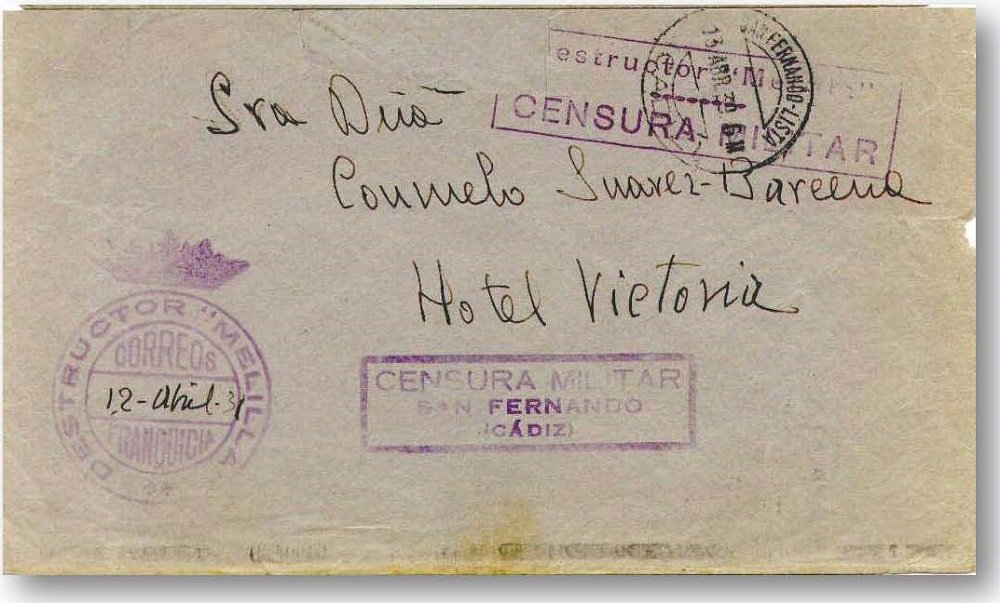 Destructor "Melilla"
CENSURA MILITAR
SAN FERNANDO-LISTA
13 ABR
6M
Sra Dña
Consuelo Suarez-Barcena
Hotel Victoria
DESTRUCTOR "MELILLA"
CORREOS
12-Abril-3
FRANQUICIA
CENSURA MILITAR
SAN FERNANDO
(CÁDIZ)